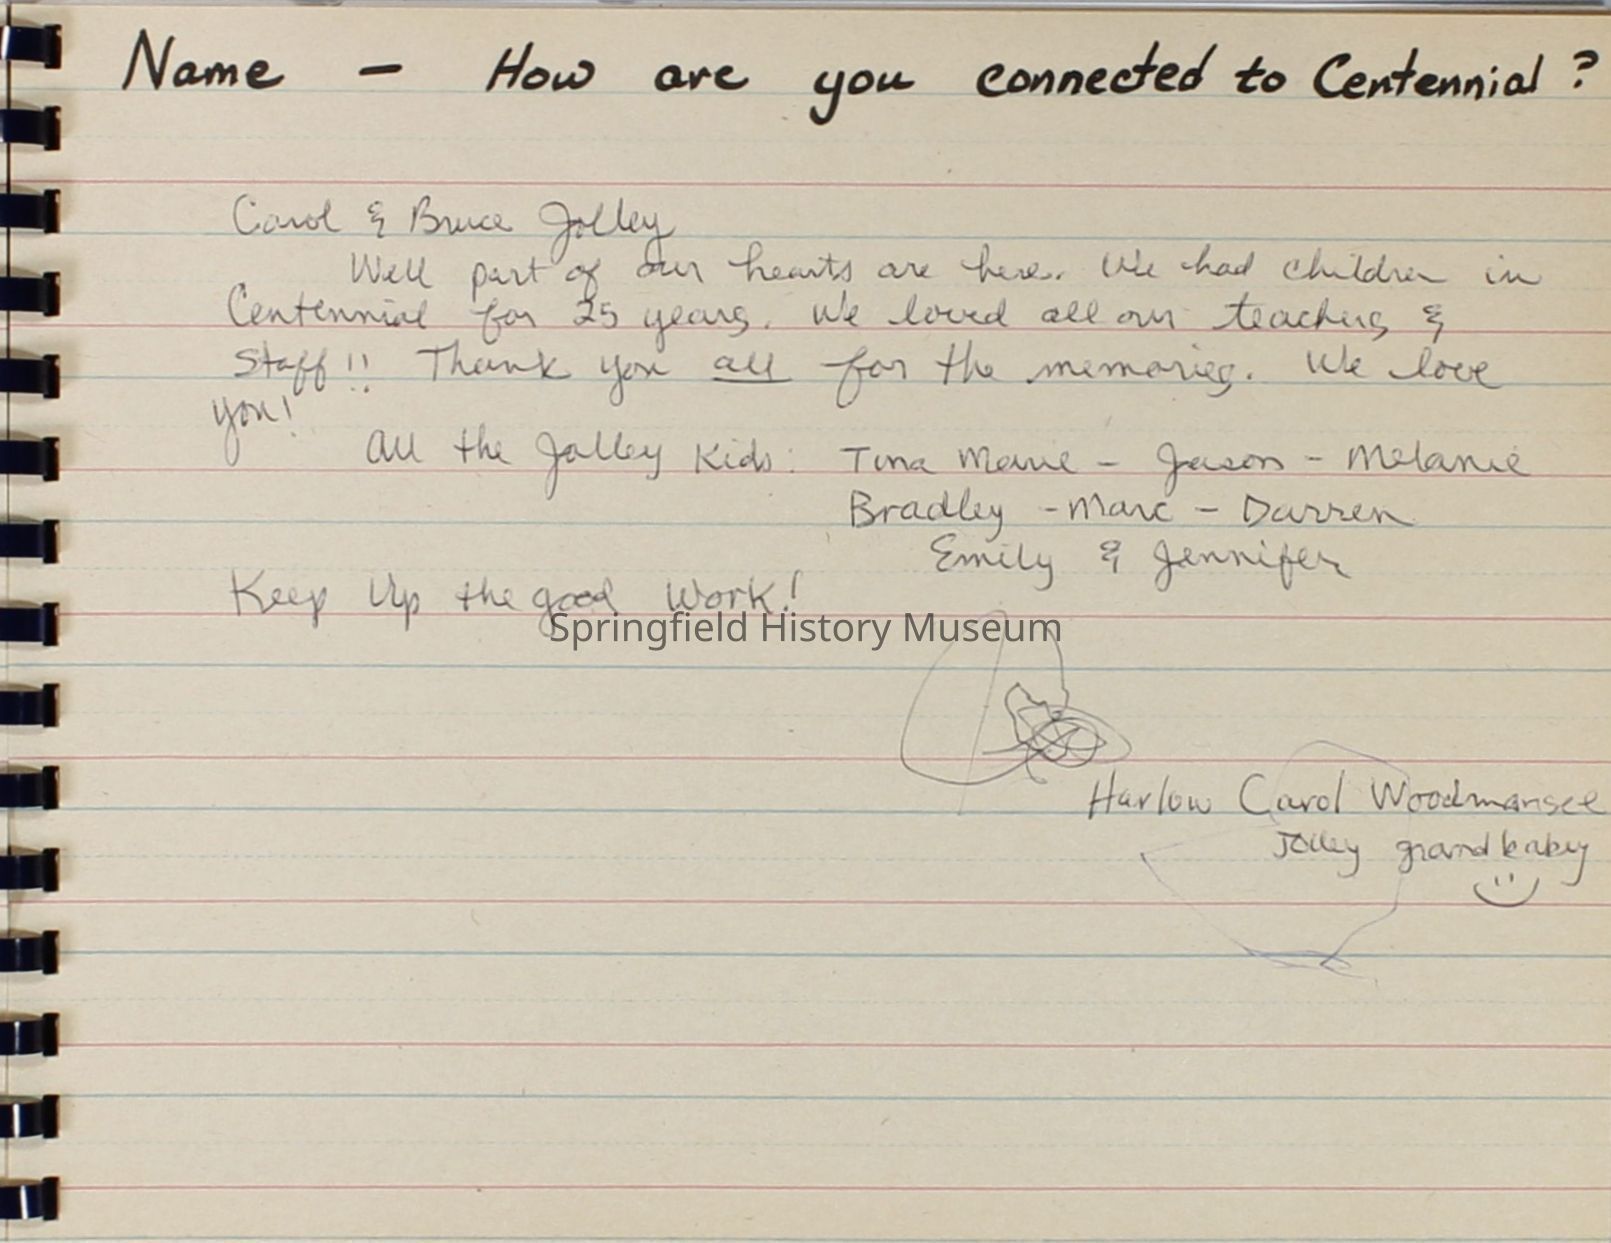 Name - How are you connected to Centennial?
Carol & Bruce Jolley
Well part of our hearts are here. We had children in
Centennial for 25 years. We loved all our teachers &
Staff!! Thank you all for the memories. We love
you!
All the Jolley Kids: Tina Marie - Jason - Melanie
Bradley - Marc - Darren
Emily & Jennifer
Keep Up the good Work!
Springfield History Museum
Harlow Carol Woodmansee
Jolley grandbaby